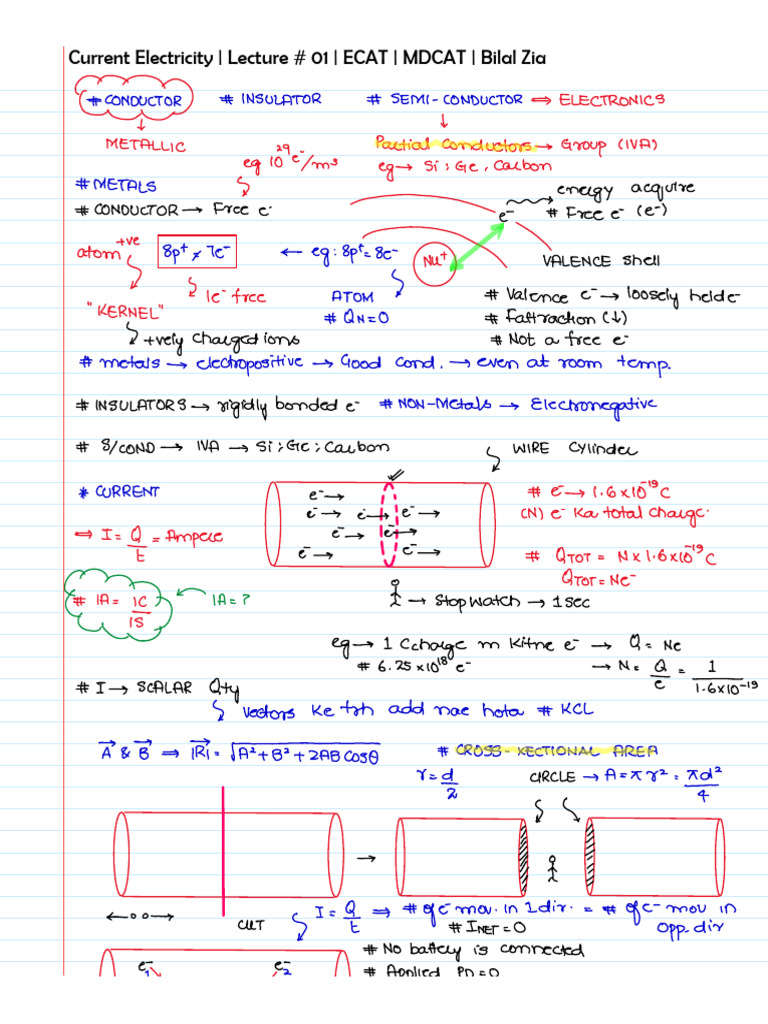 Current Electricity | Lecture # 01 | ECAT | MDCAT | Bilal Zia
# CONDUCTOR # INSULATOR # SEMI-CONDUCTOR ⇔ ELECTRONICS
↓ ↓
METALLIC Partial Conductors → Group (IVA)
eg 10²⁹ e⁻/m³ eg → Si ; Ge , Carbon
# METALS
energy acquire
# CONDUCTOR → Free e⁻ e⁻ # Free e⁻ (e⁻)
atom +ve 8p⁺ ≠ 7e⁻ ← eg: 8p⁺ = 8e⁻ Nu⁺ VALENCE Shell
1e⁻ free ATOM # Valence e⁻ → loosely helde
"KERNEL" # QN=0 # Fattraction (↓)
+vely charged ions # Not a free e⁻
# metals → electropositive → Good Cond. → even at room temp.
# INSULATORS → rigidly bonded e⁻ # NON-Metals → Electronegative
# S/COND → IVA → Si ; Ge ; Carbon WIRE Cylinder
* CURRENT e⁻→ # e⁻ → 1.6×10⁻¹⁹ C
e⁻→ e⁻→ e⁻→ (N) e⁻ Ka total Charge
⇒ I = Q/t = Ampere e⁻→ e⁻→
e⁻→ e⁻→ # QTOT = N×1.6×10⁻¹⁹ C
QTOT = Ne⁻
# 1A = 1C/1S 1A = ?
→ Stopwatch → 1 Sec
eg → 1 C charge m Kitne e⁻ → Q = Ne
# 6.25×10¹⁸ e⁻ → N = Q/e = 1/1.6×10⁻¹⁹
# I → SCALAR Qty
Vectors Ke trh add nae hota # KCL
A⃗ & B⃗ ⇒ |R⃗| = √A²+B²+2ABCosθ # CROSS-XECTIONAL AREA
r = d/2 CIRCLE → A = πr² = πd²/4
→
←○ ○→ CUT I = Q/t ⇒ # of e⁻ mov. in 1 dir. = # of e⁻ mov in opp. dir
# INET = 0
# No battery is connected
e⁻₁ e⁻₂ # Applied PD = 0